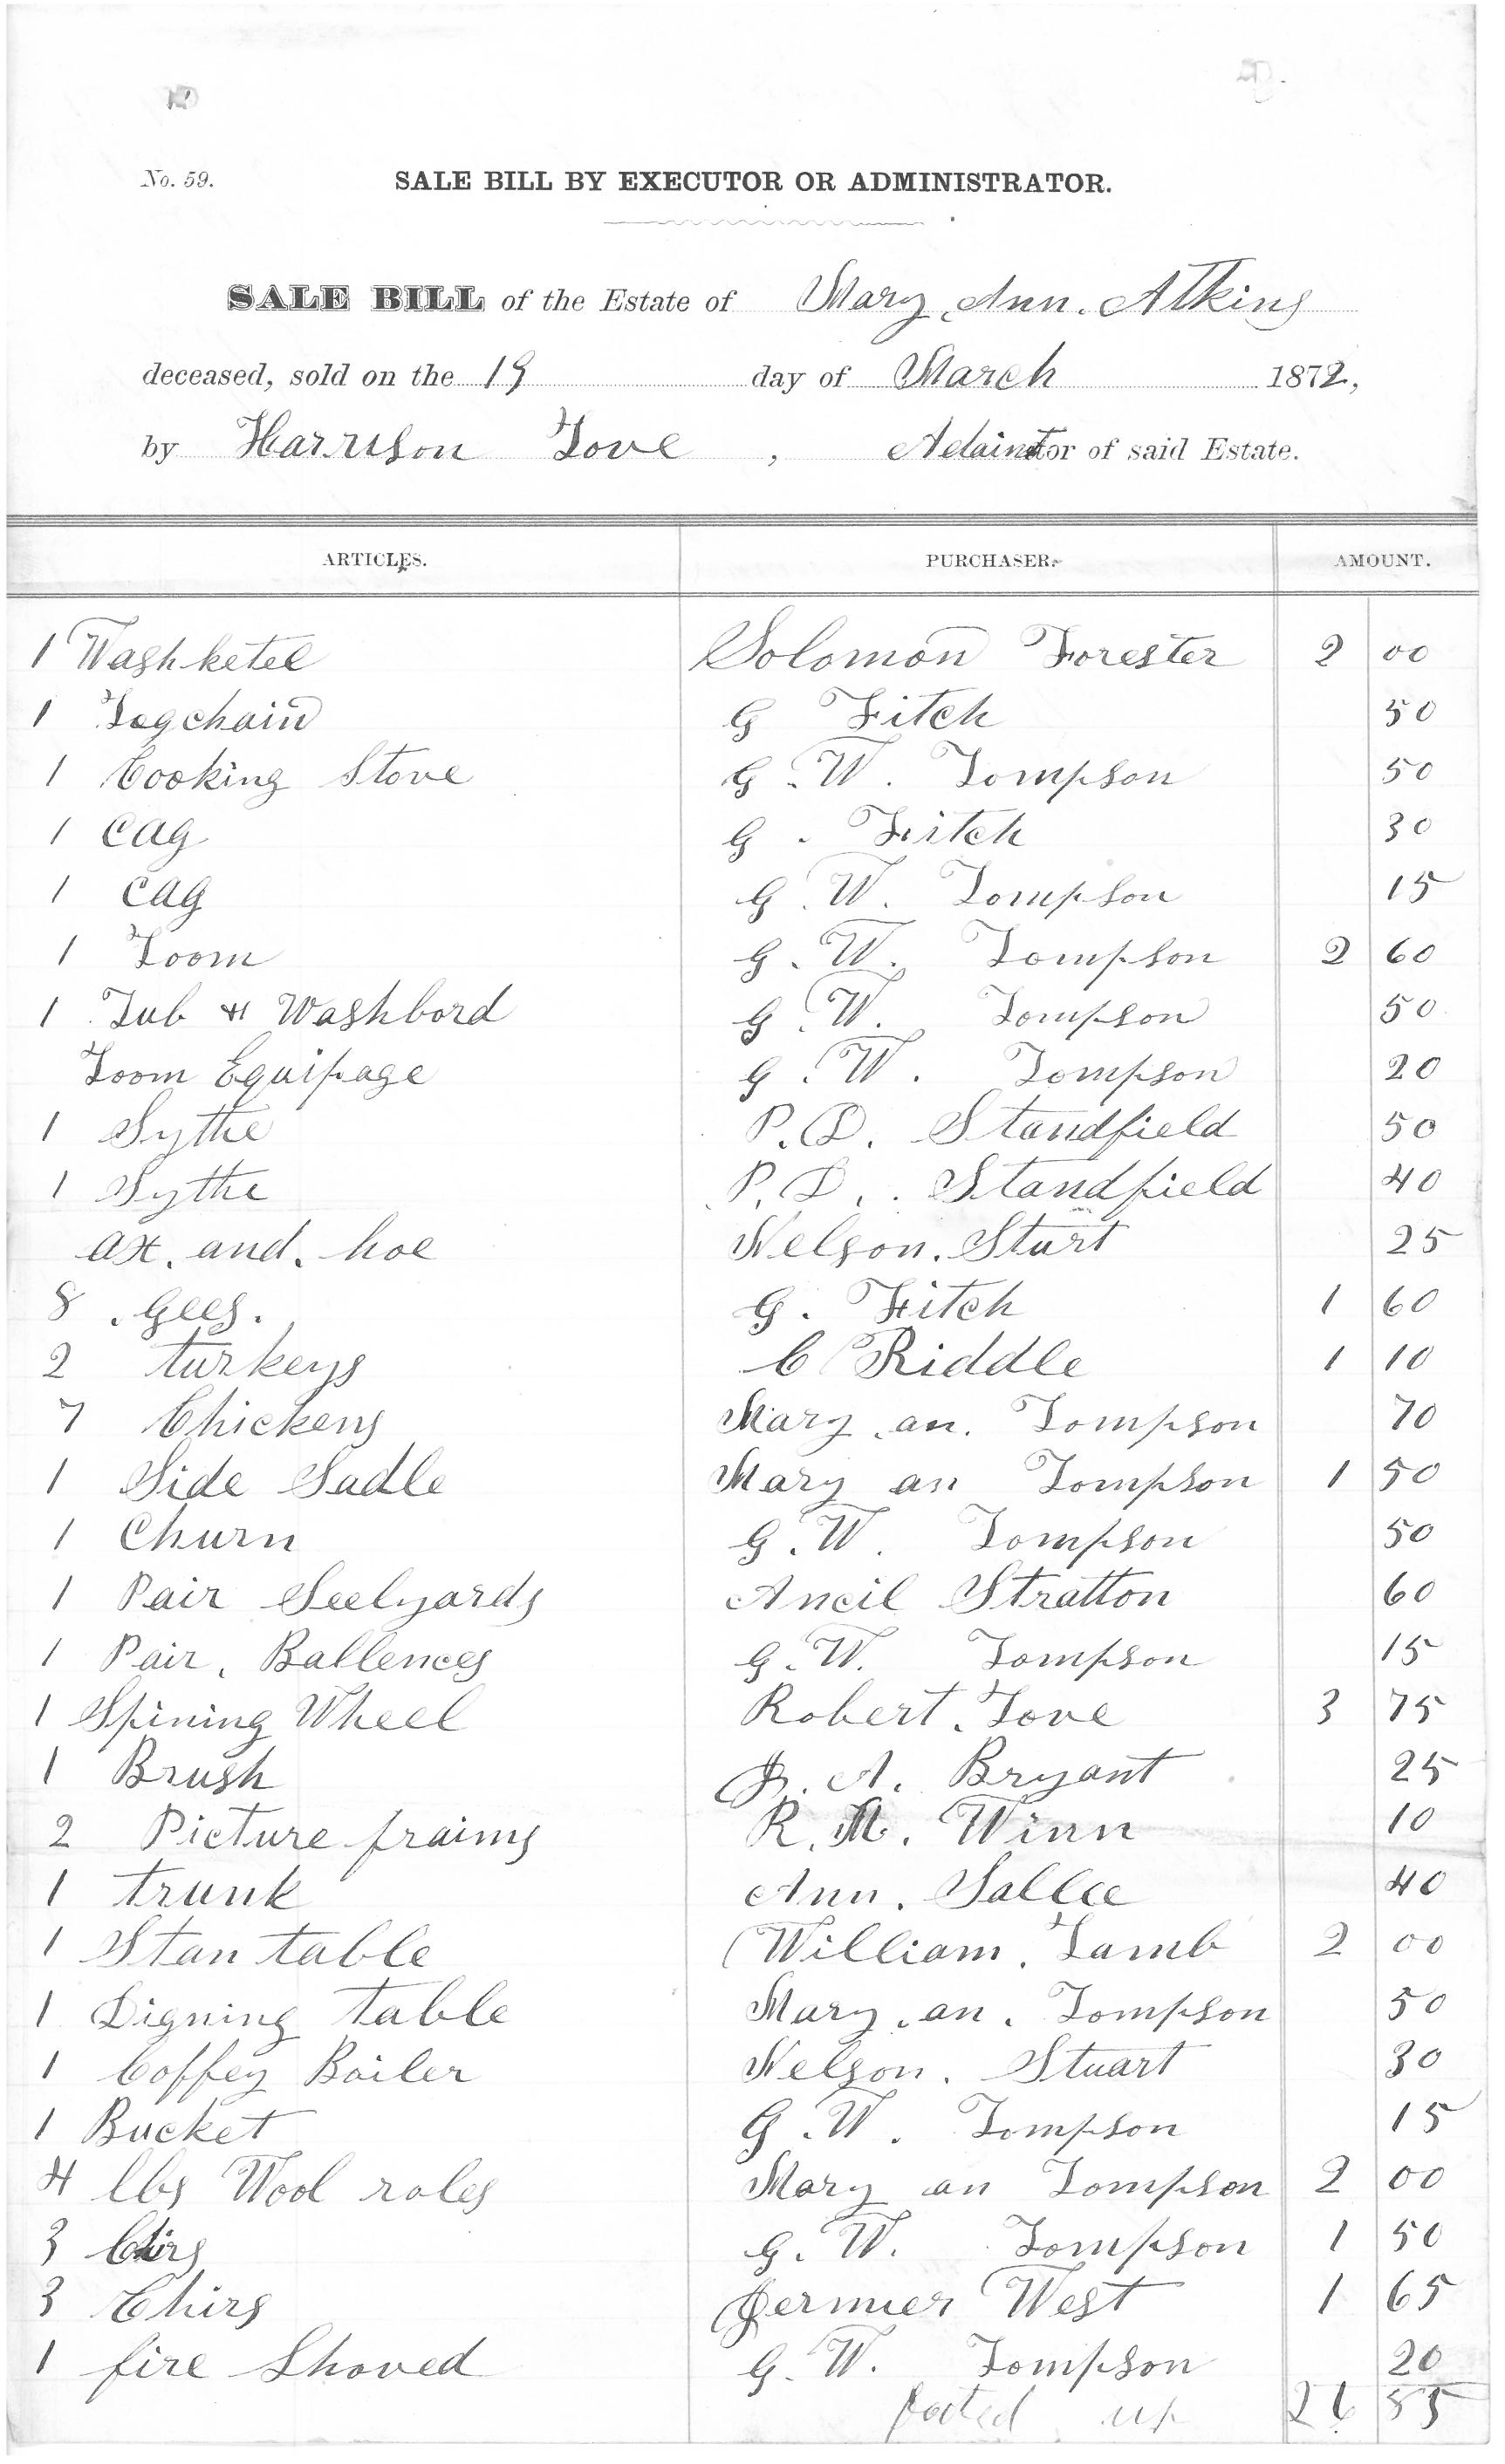 No. 59.
SALE BILL BY EXECUTOR OR ADMINISTRATOR.
SALE BILL of the Estate of Mary Ann. Atkins
deceased, sold on the 19 day of March 1872,
by Harrison Love, Adaintor of said Estate.
ARTICLES. PURCHASER. AMOUNT.
1 Washketel Solomon Forester 2 00
1 Logchain G Fitch 50
1 Cooking Stove G. W. Tompson 50
1 Cag G. Fitch 30
1 Cag G. W. Tompson 15
1 Loom G. W. Tompson 2 60
1 Tub & Washbord G. W. Tompson 50
Loom Equipage G. W. Tompson 20
1 Sythe P. D. Standfield 50
1 Sythe P. D. Standfield 40
ax. and. hoe Nelson. Sturt 25
8 . Gees. G. Fitch 1 60
2 turkeys C Riddle 1 10
7 Chickens Mary an. Tompson 70
1 Side Sadle Mary an Tompson 1 50
1 Churn G. W. Tompson 50
1 Pair Seelyards Ancil Stratton 60
1 Pair, Ballences G. W. Tompson 15
1 Spining Wheel Robert. Love 3 75
1 Brush A. Bryant 25
2 Picture fraims R. M. Winn 10
1 trunk Ann. Sallee 40
1 Stan table William. Lamb 2 00
1 Digning table Mary. an. Tompson 50
1 Coffey Boiler Nelson. Stuart 30
1 Bucket G. W. Tompson 15
4 lbs Wool roles Mary an Tompson 2 00
3 Chirs G. W. Tompson 1 50
3 Chirs Jermier West 1 65
1 fire Shoved G. W. Tompson 20
footed up 26 85